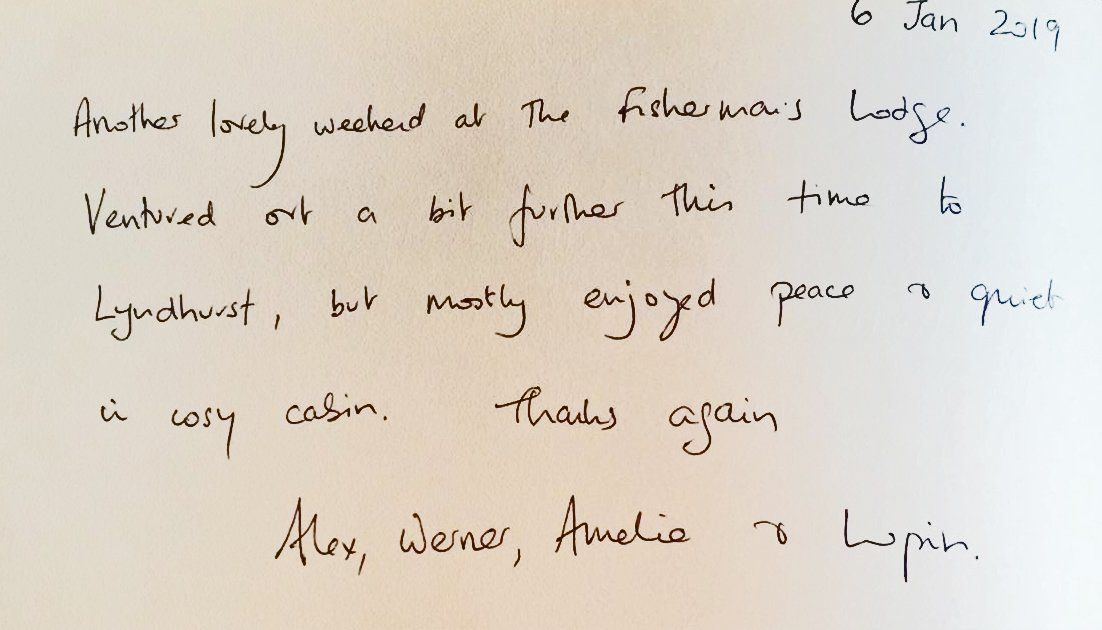 6 Jan 2019
Another lovely weekend at The Fisherman's Lodge.
Ventured out a bit further this time to
Lyndhurst, but mostly enjoyed peace & quiet
in cosy cabin. Thanks again
Alex, Werner, Amelie & Lupin.